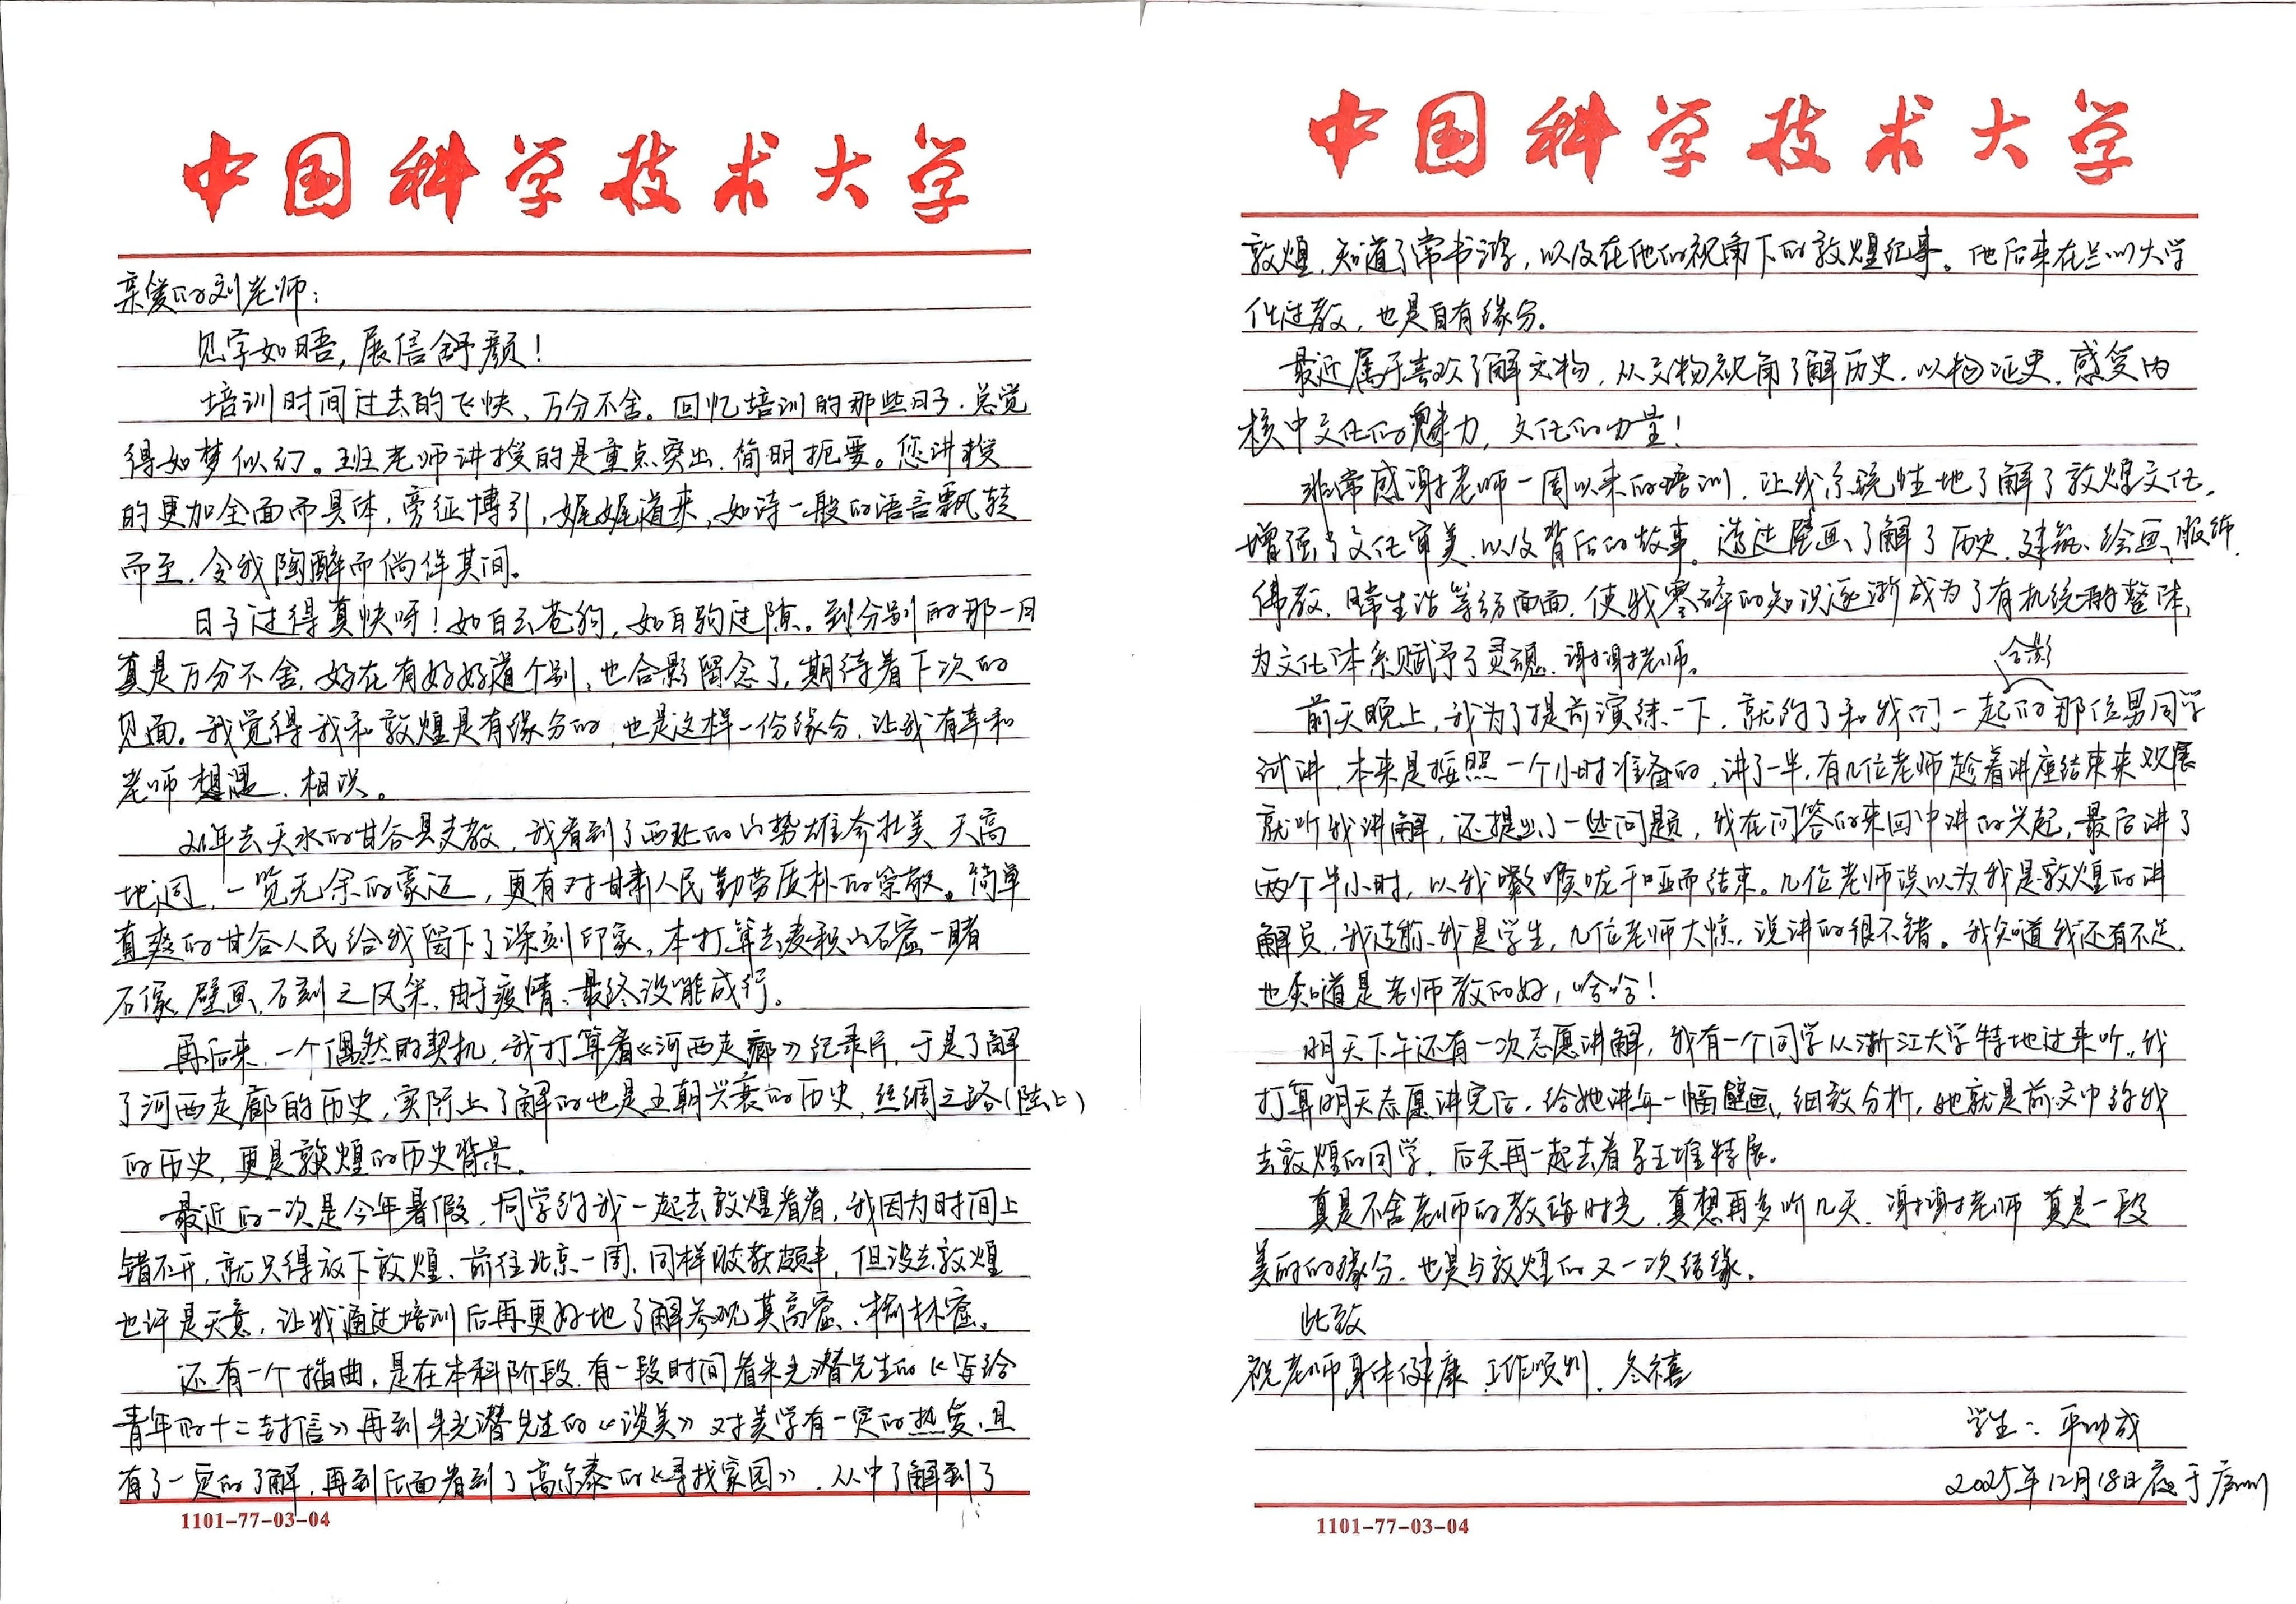 中国科学技术大学
亲爱的刘老师：
见字如晤，展信舒颜！
培训时间过去的飞快，万分不舍。回忆培训的那些日子，总觉
得如梦似幻。班老师讲授的是重点突出，简明扼要。您讲授
的更加全面而具体，旁征博引，娓娓道来，如诗一般的语言飘转
而至，令我陶醉而徜徉其间。
日子过得真快呀！如白云苍狗，如白驹过隙。到分别的那一月
真是万分不舍，好在有好好道个别，也合影留念了，期待着下次的
见面。我觉得我和敦煌是有缘分的，也是这样一份缘分，让我有幸和
老师想遇、相识。
21年去天水的甘谷县支教，我看到了西北的山势雄奇壮美，天高
地迥，一览无余的豪迈，更有对甘肃人民勤劳质朴的崇敬。简单
直爽的甘谷人民给我留下了深刻印象，本打算去麦积山石窟一睹
石像、壁画、石刻之风采，由于疫情，最终没能成行。
再后来，一个偶然的契机，我打算看《河西走廊》纪录片，于是了解
了河西走廊的历史，实际上了解的也是王朝兴衰的历史，丝绸之路（陆上）
的历史，更是敦煌的历史背景。
最近的一次是今年暑假，同学约我一起去敦煌看看，我因为时间上
错不开，就只得放下敦煌，前往北京一周，同样收获颇丰，但没去敦煌
也许是天意，让我通过培训后再更好地了解参观莫高窟、榆林窟。
还有一个插曲，是在本科阶段，有一段时间看朱光潜先生的《写给
青年的十二封信》再到朱光潜先生的《谈美》对美学有一定的热爱，且
有了一定的了解，再到后面看到了高尔泰的《寻找家园》，从中了解到了
1101-77-03-04
中国科学技术大学
敦煌，知道了常书鸿，以及在他的视角下的敦煌纪事。他后来在兰州大学
任过教，也是自有缘分。
最近属于喜欢了解文物，从文物视角了解历史，以物证史，感受内
核中文化的魅力，文化的力量！
非常感谢老师一周以来的培训，让我系统性地了解了敦煌文化，
增强了文化审美，以及背后的故事。透过壁画，了解了历史、建筑、绘画、服饰、
佛教、日常生活等方面面，使我零碎的知识逐渐成为了有机统一的整体，
为文化体系赋予了灵魂，谢谢老师。
合影
前天晚上，我为了提前演练一下，就约了和我们一起的那位男同学
试讲，本来是按照一个小时准备的，讲了一半，有几位老师趁着讲座结束来观展
就听我讲解，还提出了一些问题，我在问答的来回中讲的兴起，最后讲了
两个半小时，以我嗓喉咙干哑而结束。几位老师误以为我是敦煌的讲
解员，我说我是学生，几位老师大惊，说讲的很不错。我知道我还有不足，
也知道是老师教的好，哈哈！
明天下午还有一次志愿讲解，我有一个同学从浙江大学特地过来听，我
打算明天志愿讲完后，给她讲每一幅壁画，细致分析，她就是前文中约我
去敦煌的同学，后天再一起去看马王堆特展。
真是不舍老师的教诲时光，真想再多听几天，谢谢老师，真是一段
美好的缘分，也是与敦煌的又一次结缘。
此致
祝老师身体健康，工作顺利，冬禧
学生：平功成
2025年12月18日夜于庐州
1101-77-03-04